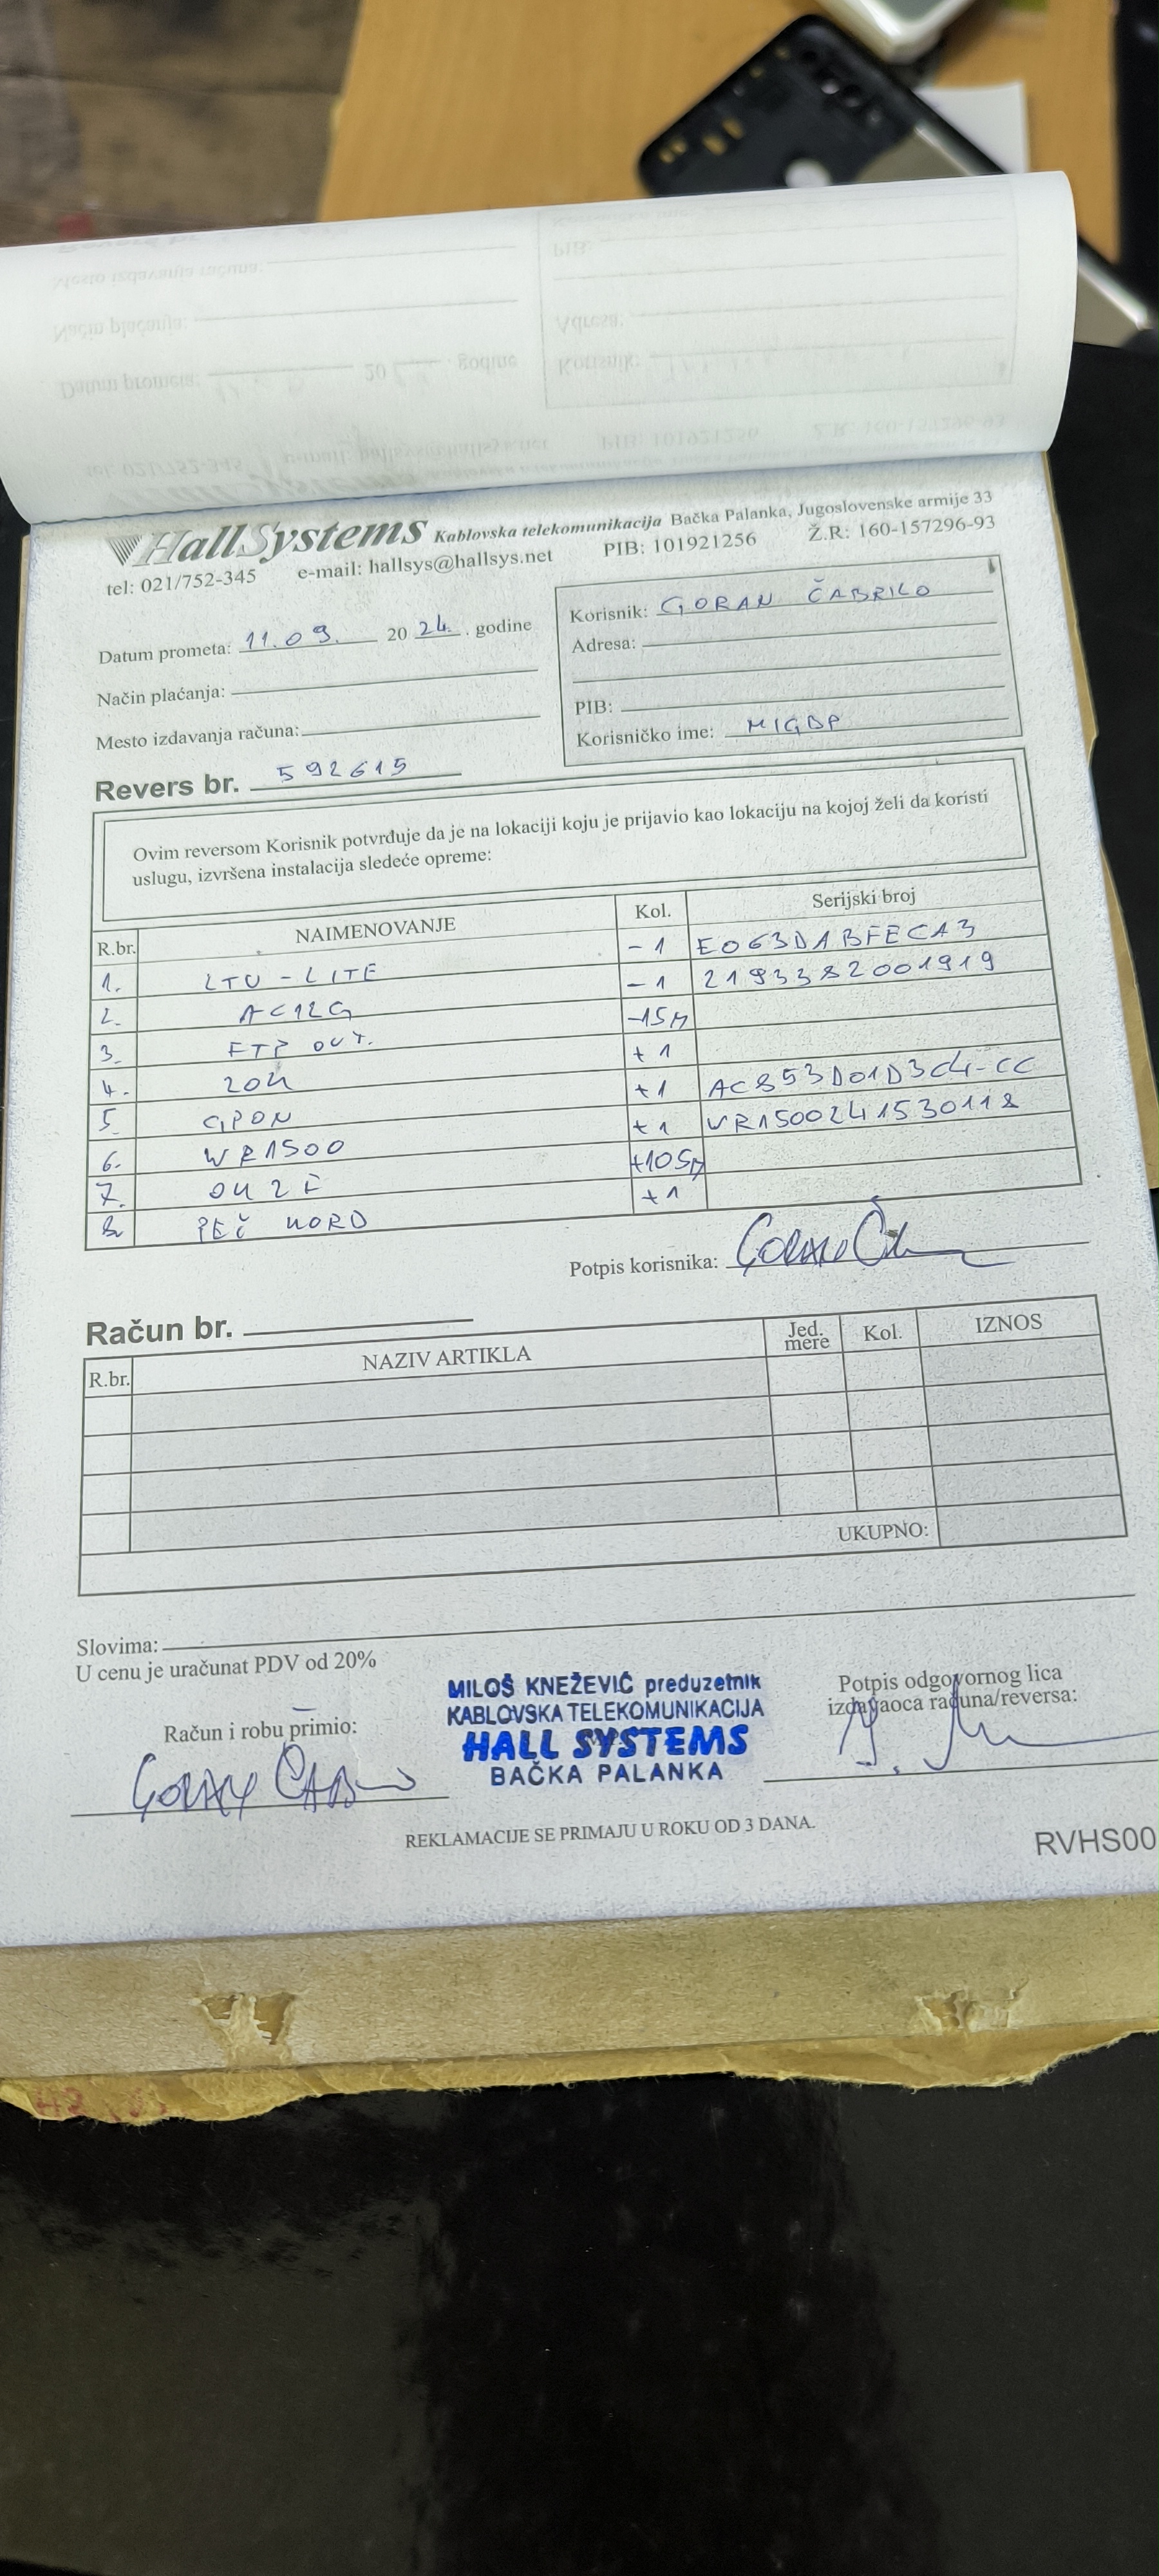 HallSystems Kablovska telekomunikacija Bačka Palanka, Jugoslovenske armije 33
tel: 021/752-345 e-mail: hallsys@hallsys.net PIB: 101921256 Ž.R: 160-157296-93
Datum prometa: 11.09. 20 24. godine
Način plaćanja:
Mesto izdavanja računa:
Korisnik: GORAN ČABRILO
Adresa:
PIB:
Korisničko ime: MIGBP
Revers br. 592615
Ovim reversom Korisnik potvrđuje da je na lokaciji koju je prijavio kao lokaciju na kojoj želi da koristi
uslugu, izvršena instalacija sledeće opreme:
R.br. NAIMENOVANJE Kol. Serijski broj
1. LTU - LITE -1 E063DABFECA3
2. AC12G -1 2193382001919
3. FTP OUT. -15M
4. ZOK +1
5. GPON +1 AC853D01D3C4-CC
6. WR1500 +1 WR1500241530118
7. OK 2F +105M
8. PEČ KORD +1
Potpis korisnika:
Račun br.
R.br. NAZIV ARTIKLA Jed. mere Kol. IZNOS
UKUPNO:
Slovima:
U cenu je uračunat PDV od 20%
Račun i robu primio:
MILOŠ KNEŽEVIĆ preduzetnik
KABLOVSKA TELEKOMUNIKACIJA
HALL SYSTEMS
BAČKA PALANKA
Potpis odgovornog lica
izdavaoca računa/reversa:
REKLAMACIJE SE PRIMAJU U ROKU OD 3 DANA.
RVHS00